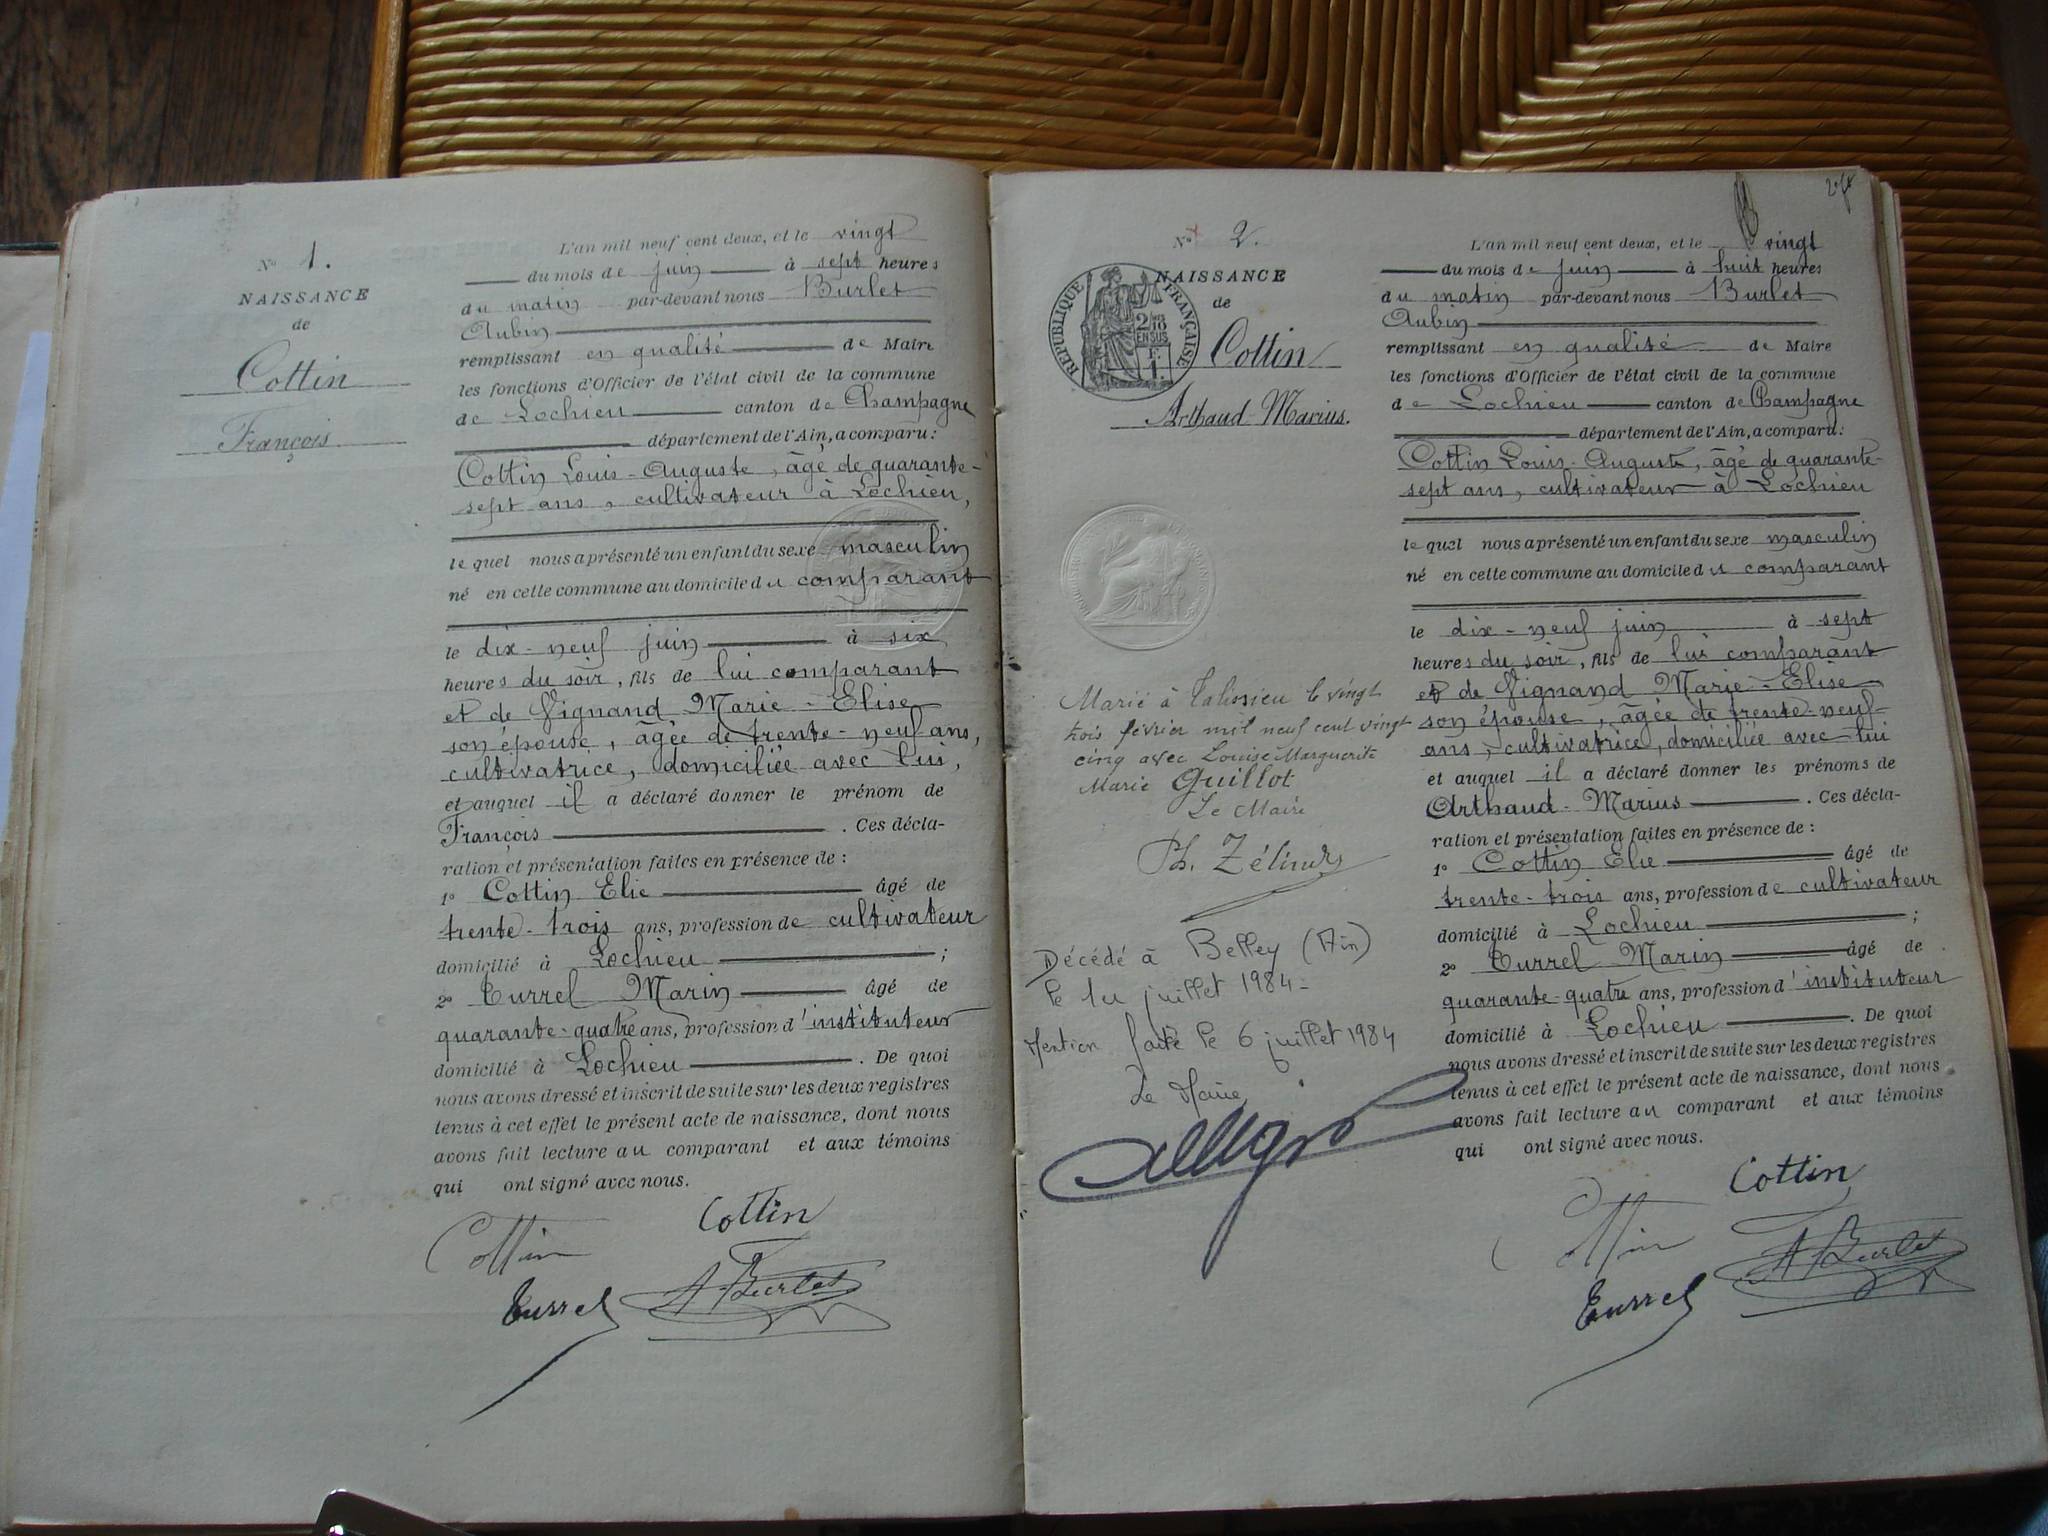 N° 1.
NAISSANCE
de
Cottin
François
L'an mil neuf cent deux, et le vingt
du mois de juin à sept heures
du matin par-devant nous Burlet
Aubin
remplissant en qualité de Maire
les fonctions d'Officier de l'état civil de la commune
de Lochieu canton de Champagne
département de l'Ain, a comparu :
Cottin Louis-Auguste, âgé de quarante-
sept ans, cultivateur à Lochieu,
le quel nous a présenté un enfant du sexe masculin
né en cette commune au domicile du comparant
le dix-neuf juin à six
heures du soir, fils de lui comparant
et de Vignand Marie-Elise
son épouse, âgée de trente-neuf ans,
cultivatrice, domiciliée avec lui,
et auquel il a déclaré donner le prénom de
François . Ces décla-
ration et présentation faites en présence de :
1° Cottin Elie âgé de
trente-trois ans, profession de cultivateur
domicilié à Lochieu ;
2° Turrel Marin âgé de
quarante-quatre ans, profession d'instituteur
domicilié à Lochieu . De quoi
nous avons dressé et inscrit de suite sur les deux registres
tenus à cet effet le présent acte de naissance, dont nous
avons fait lecture au comparant et aux témoins
qui ont signé avec nous.
Cottin
Cottin
Turrel
A Burlet
N° 2.
NAISSANCE
de
Cottin
Arthaud-Marius.
RÉPUBLIQUE FRANÇAISE
2/10 EN SUS
F. 1.
Marié à Talissieu le vingt
trois février mil neuf cent vingt
cinq avec Louise Marguerite
Marie Guillot
Le Maire
Décédé à Belley (Ain)
le 1er juillet 1984-
Mention faite le 6 juillet 1984
Le Maire
L'an mil neuf cent deux, et le vingt
du mois de juin à huit heures
du matin par-devant nous Burlet
Aubin
remplissant en qualité de Maire
les fonctions d'Officier de l'état civil de la commune
de Lochieu canton de Champagne
département de l'Ain, a comparu :
Cottin Louis-Auguste, âgé de quarante-
sept ans, cultivateur à Lochieu
le quel nous a présenté un enfant du sexe masculin
né en cette commune au domicile du comparant
le dix-neuf juin à sept
heures du soir, fils de lui comparant
et de Vignand Marie-Elise
son épouse, âgée de trente-neuf
ans, cultivatrice, domiciliée avec lui
et auquel il a déclaré donner les prénoms de
Arthaud-Marius . Ces décla-
ration et présentation faites en présence de :
1° Cottin Elie âgé de
trente-trois ans, profession de cultivateur
domicilié à Lochieu ;
2° Turrel Marin âgé de
quarante-quatre ans, profession d'instituteur
domicilié à Lochieu . De quoi
nous avons dressé et inscrit de suite sur les deux registres
tenus à cet effet le présent acte de naissance, dont nous
avons fait lecture au comparant et aux témoins
qui ont signé avec nous.
Cottin
Cottin
Turrel
A Burlet